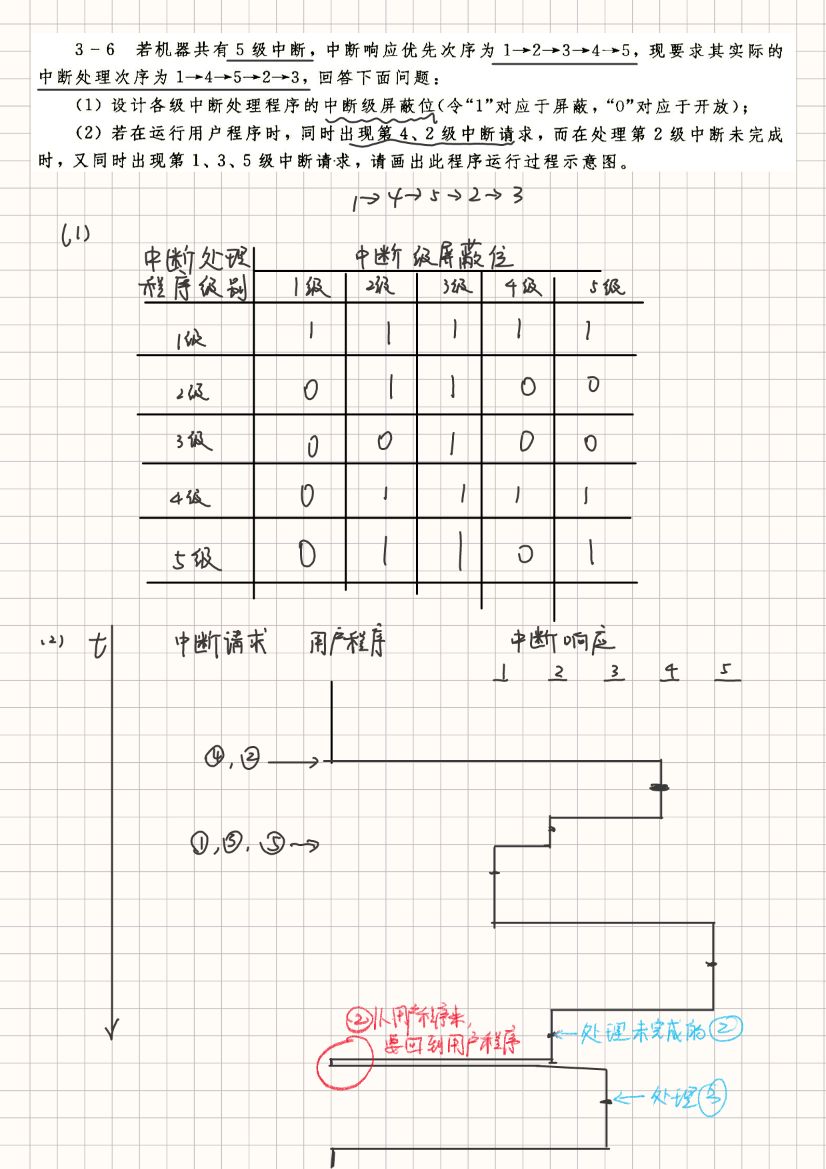 3-6 若机器共有5级中断，中断响应优先次序为1→2→3→4→5，现要求其实际的
中断处理次序为1→4→5→2→3，回答下面问题：
(1) 设计各级中断处理程序的中断级屏蔽位(令“1”对应于屏蔽，“0”对应于开放)；
(2) 若在运行用户程序时，同时出现第4、2级中断请求，而在处理第2级中断未完成
时，又同时出现第1、3、5级中断请求，请画出此程序运行过程示意图。
1→4→5→2→3
(1)
中断处理 中断级屏蔽位
程序级别 1级 2级 3级 4级 5级
1级 1 1 1 1 1
2级 0 1 1 0 0
3级 0 0 1 0 0
4级 0 1 1 1 1
5级 0 1 1 0 1
(2) t 中断请求 用户程序 中断响应
1 2 3 4 5
④,②→
①,③,⑤→
②从用户程序来,
要回到用户程序
←处理未完成的②
←处理③